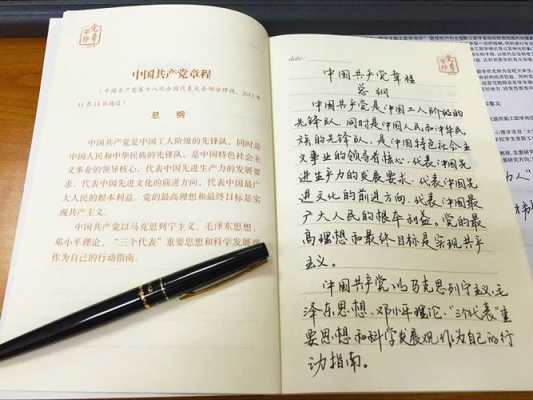 中国共产党章程
（中国共产党第十八次全国代表大会部分修改，2012年
11月14日通过）
总 纲
中国共产党是中国工人阶级的先锋队，同时是
中国人民和中华民族的先锋队，是中国特色社会主
义事业的领导核心，代表中国先进生产力的发展要
求，代表中国先进文化的前进方向，代表中国最广
大人民的根本利益。党的最高理想和最终目标是实
现共产主义。
中国共产党以马克思列宁主义、毛泽东思想、
邓小平理论、“三个代表”重要思想和科学发展观
作为自己的行动指南。
date:
中国共产党章程
总纲
中国共产党是中国工人阶级的
先锋队，同时是中国人民和中华民
族的先锋队，是中国特色社会主
义事业的领导核心，代表中国先
进生产力的发展要求，代表中国先
进文化的前进方向，代表中国最
广大人民的根本利益。党的最
高理想和最终目标是实现共产
主义。
中国共产党以马克思列宁主义、毛
泽东思想、邓小平理论、“三个代表”重
要思想和科学发展观作为自己的行
动指南。